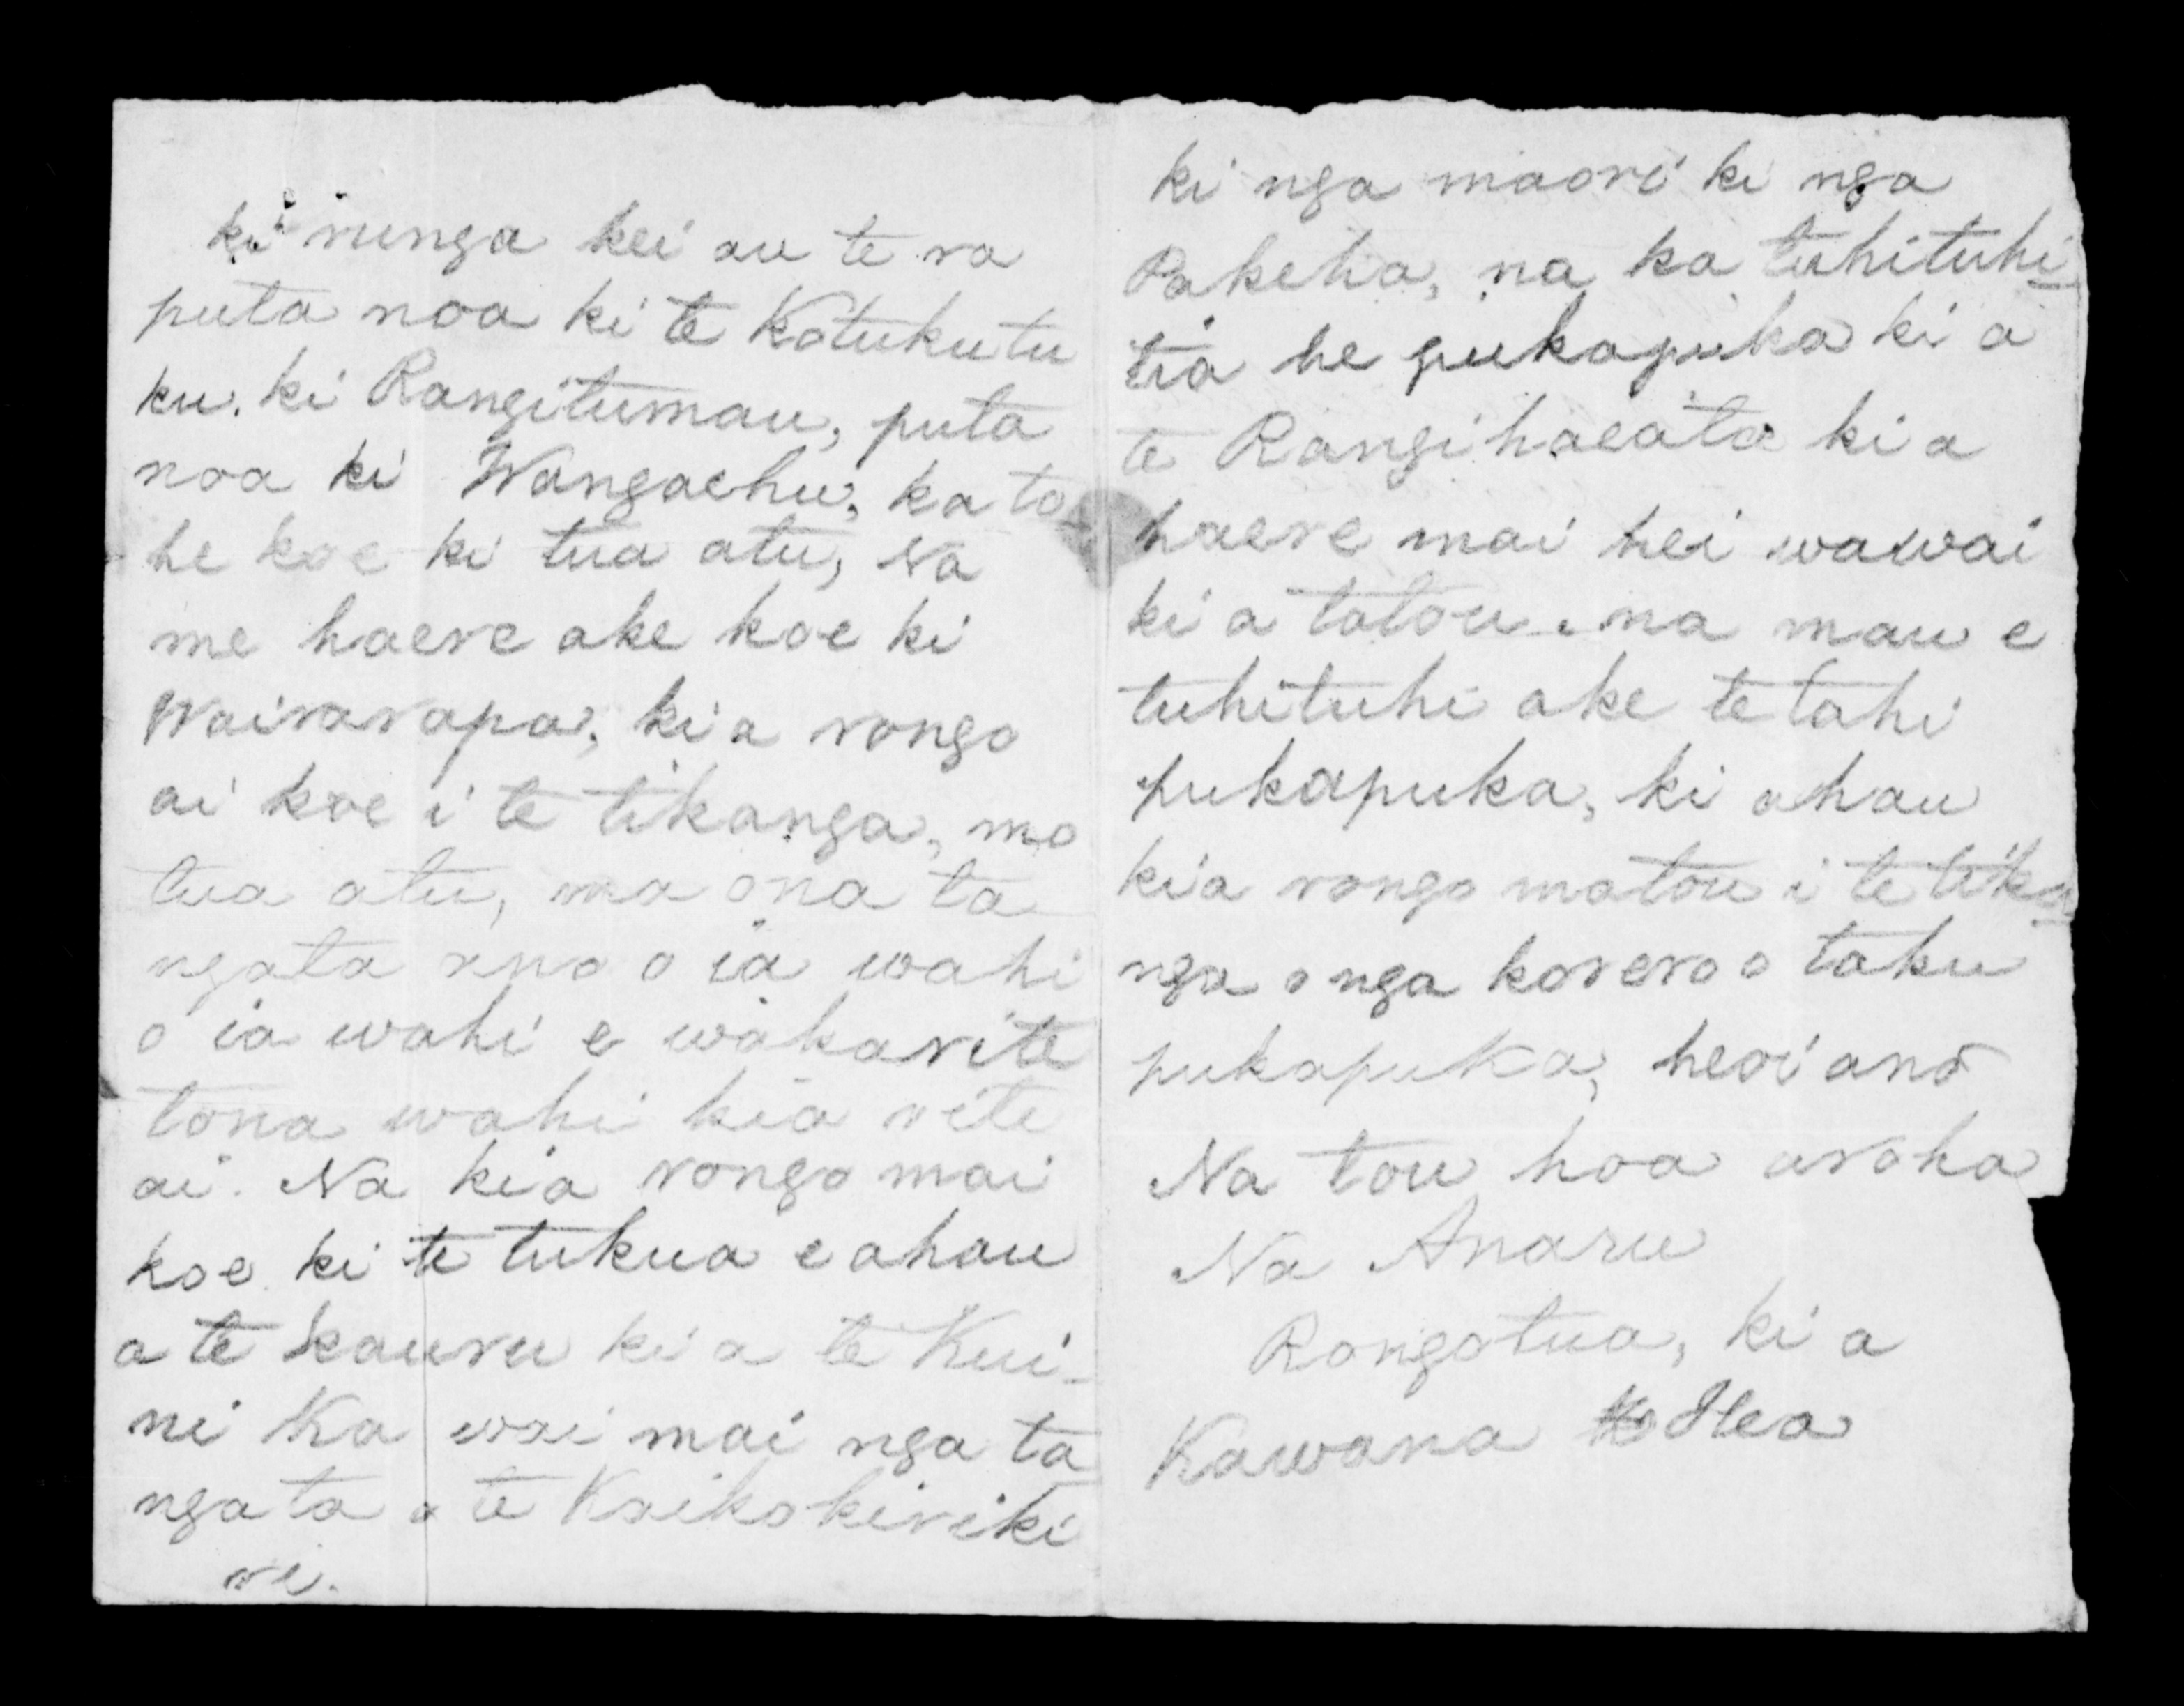 ki runga kei au te ra
puta noa ki te Kotukutu
ku. ki Rangitumau, puta
noa ki Wangaehu, ka to-
he koe ki tua atu, Na
me haere ake koe ki
Wairarapa, kia rongo
ai koe i te tikanga, mo
tua atu, ma ona ta
ngata ano o ia wahi
o ia wahi e wakarite
tona wahi kia rite
ai. Na kia rongo mai
koe ki te tukua e ahau
a te kauru ki a te Kui-
ni Ka wai mai nga ta
ngata o te Kaikokiriki
ri.
ki nga maori ki nga
Pakeha, na ka tuhituhi-
tia he pukapuka ki a
te Rangihaeata kia
haere mai hei wawai
ki a tatou. na mau e
tuhituhi ake te tahi
pukapuka, ki ahau
kia rongo matou i te tika-
nga o nga korero o taku
pukapuka, heoi ano
Na tou hoa aroha
Na Anaru
Rongotua, ki a
Kawana